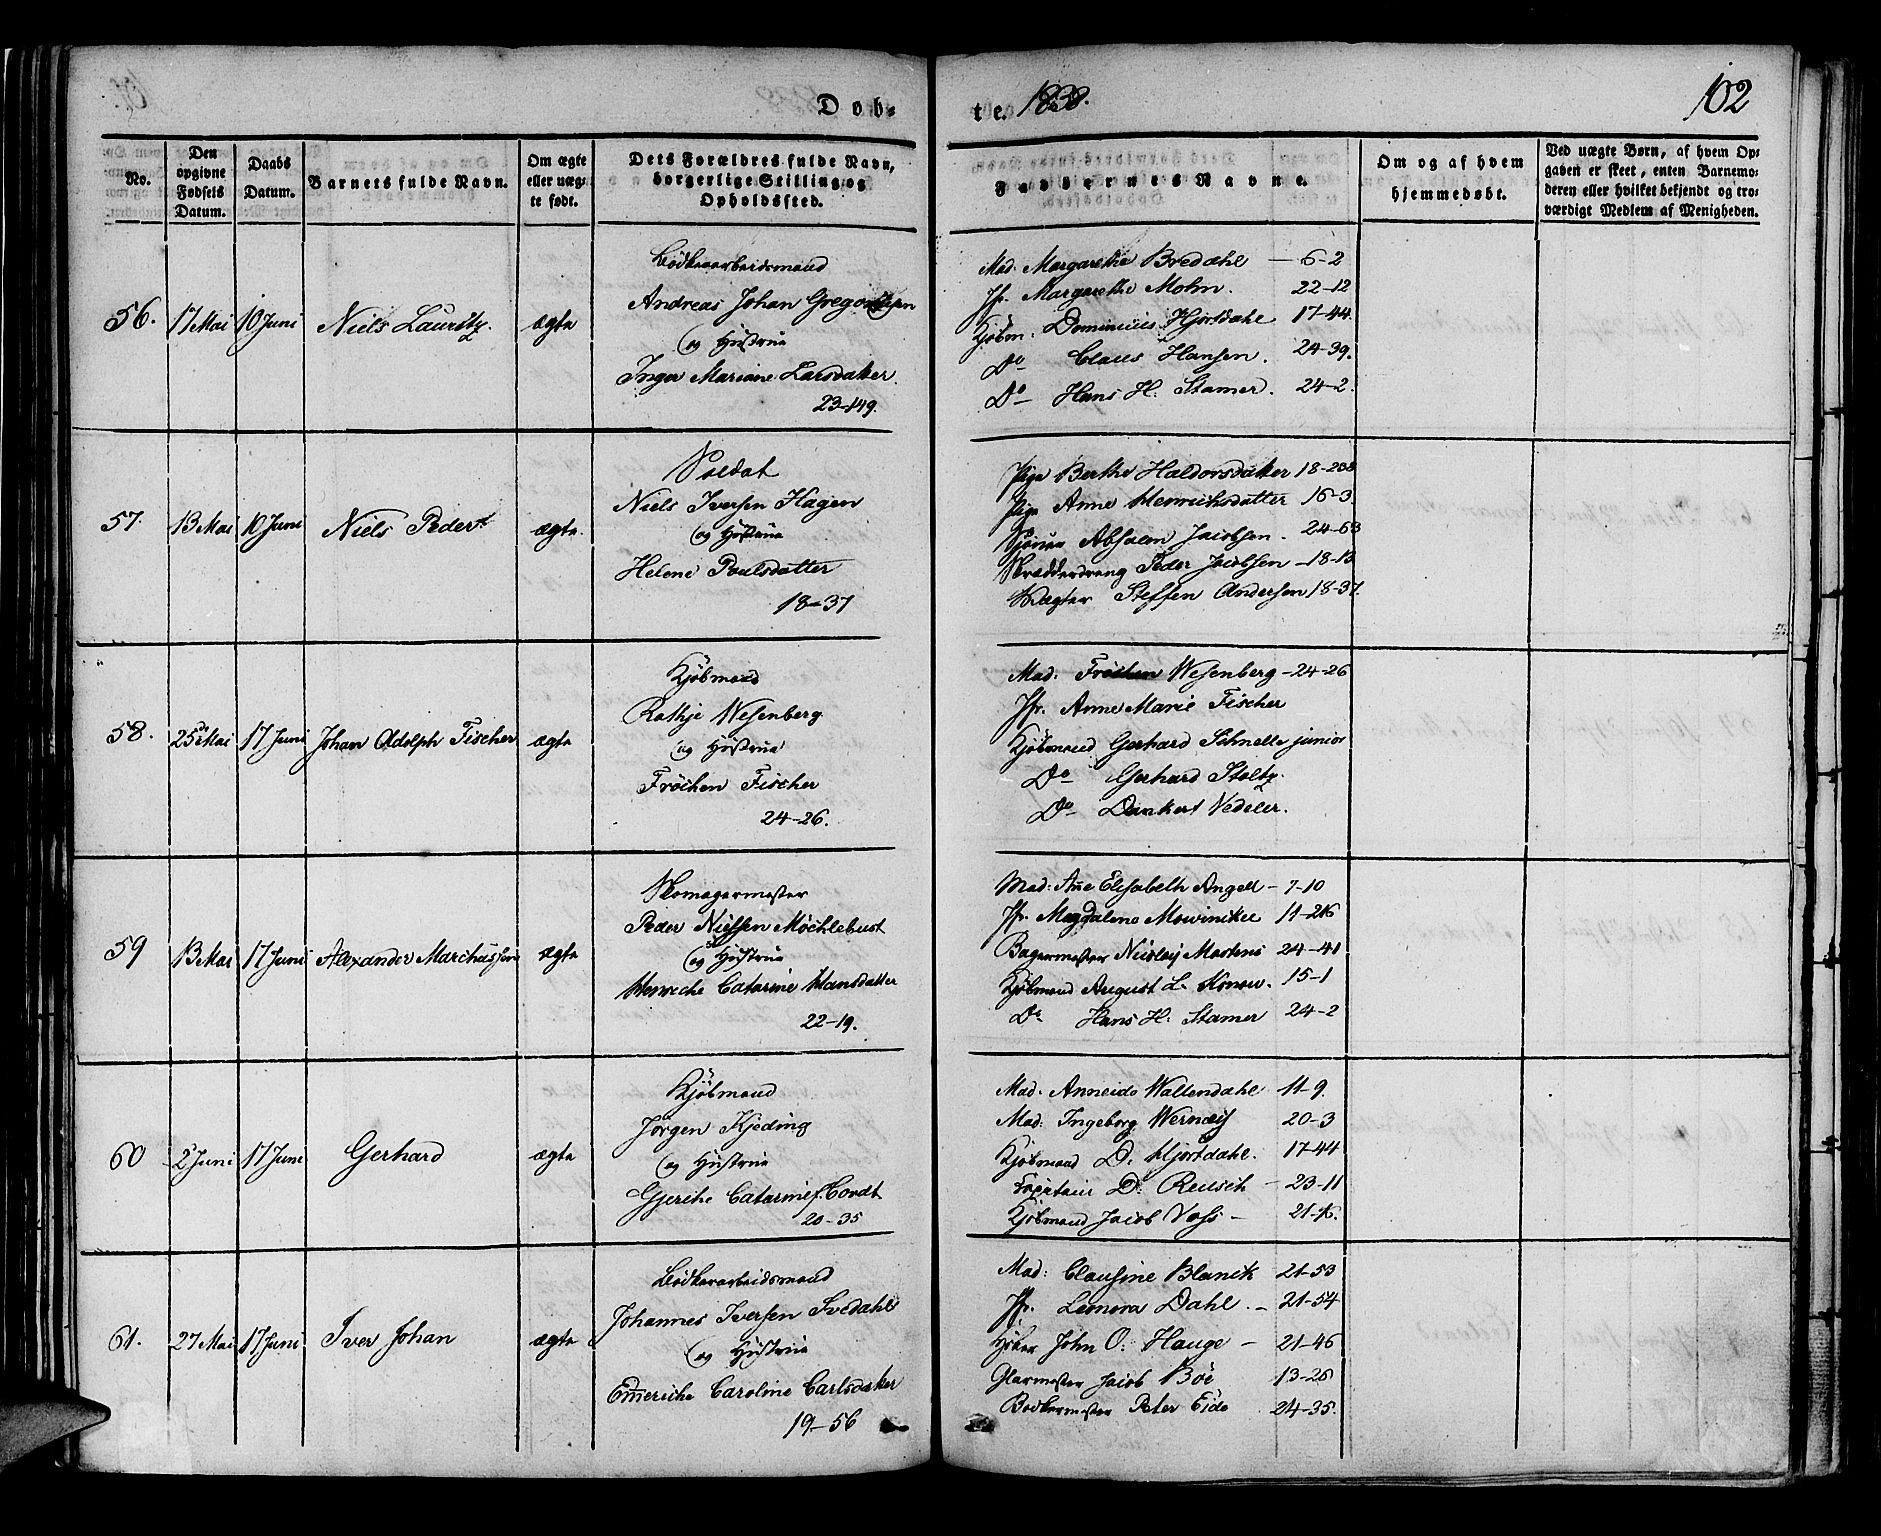 Døb-
te. 1838.
102
No.
Den opgivne Fødsels Datum.
Daabs Datum.
Barnets fulde Navn.
Om ægte eller uægte født.
Dets Forældres fulde Navn, borgerlige Stilling og Opholdssted.
Faddernes Navne.
Om og af hvem hjemmedøbt.
Ved uægte Børn, af hvem Opgaven er skeet, enten Barnemoderen eller hvilket bekjendt og troværdigt Medlem af Menigheden.
56. 17 Mai 10 Juni Niels Lauritz. ægte
Bødkerarbeidsmand
Andreas Johan Gregoriusen
og Hustrue
Inger Mariane Larsdatter.
23-149.
Mad. Margarethe Bredahl - 6-2
Jfr. Margarethe Mohn. 22-12
Kjøbm. Dominicus Hjortdahl 17-44.
Do Claus Hansen. 24-39.
Do Hans H. Stamer. 24-2.
57. 13 Mai 10 Juni Niels Peder ægte.
Soldat
Niels Iversen Hagen
og Hustrue
Helene Poulsdatter
18-37
Pige Berthe Haldorsdatter 18-208
Pige Anne Henrichsdatter 16-3
Absalon Jacobsen. 24-63
Skrædderdreng Peder Jacobsen - 18-13
Vægter Steffen Andersen 18-37.
58. 25 Mai 17 Juni Johan Adolph Fischer ægte
Kjøbmand
Rathje Wesenberg
og Hustrue
Frøchen Fischer
24-26.
Mad: Frøchen Wesenberg - 24-26
Jfr. Anne Marie Fischer
Kjøbmand Gerhard Schnelle junior
Do Gerhard Stoltz.
Do Dankert Vedeler.
59 13 Mai 17 Juni Alexander Marchussen ægte
Skomagermester
Peder Nielsen Møchlebust
og Hustrue
Henriche Catarine Hansdatter
22-19.
Mad: Ane Elisabeth Angell - 7-10
Jfr. Magdalena Mowinckel 11-216
Bagermester Nicolay Martens 24-41
Kjøbmand August L. Konow. 15-1
Do Hans H. Stamer 24-2
60 2 Juni 17 Juni Gerhard ægte
Kjøbmand
Jørgen Kjeding
og Hustrue
Gjeriche Catarine f. Cordt
20-35
Mad. Anneide Wallendahl 11-9.
Mad. Ingeborg Wernøy 20-3
Kjøbmand D. Hjortdahl. 17-44
Captain D. Reusch - 23-11
Kjøbmand Jacob Voss - 21-16.
61. 27 Mai 17 Juni Iver Johan ægte
Bødkerarbeidsmand
Johannes Iversen Svedahl
og Hustrue
Emeriche Caroline Carlsdatter
19-56
Mad: Clausine Blanck 21-53
Jfr. Leonora Dahl. - 21-54
Høker John O. Hauge - 21-46
Glarmester Jacob Bøe 13-26
Bødkermester Peter Eide 24-35.